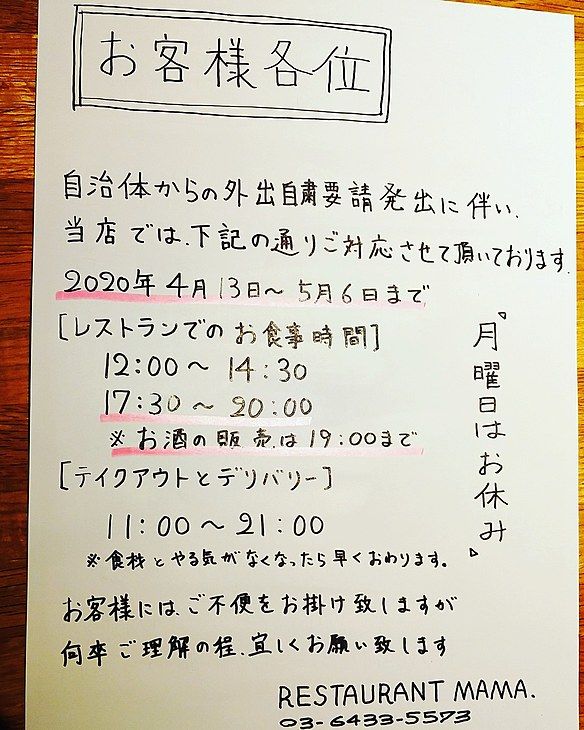 お客様各位
自治体からの外出自粛要請発出に伴い、
当店では、下記の通りご対応させて頂いております。
2020年 4月 13日〜 5月 6日まで
[レストランでの お食事時間]
12:00 〜 14:30
17:30 〜 20:00
※ お酒の販売は 19:00まで
[テイクアウトとデリバリー]
11:00 〜 21:00
※食材とやる気がなくなったら早くおわります。
"月曜日はお休み"
お客様には、ご不便をお掛け致しますが
何卒ご理解の程、宜しくお願い致します
RESTAURANT MAMA.
03-6433-5573